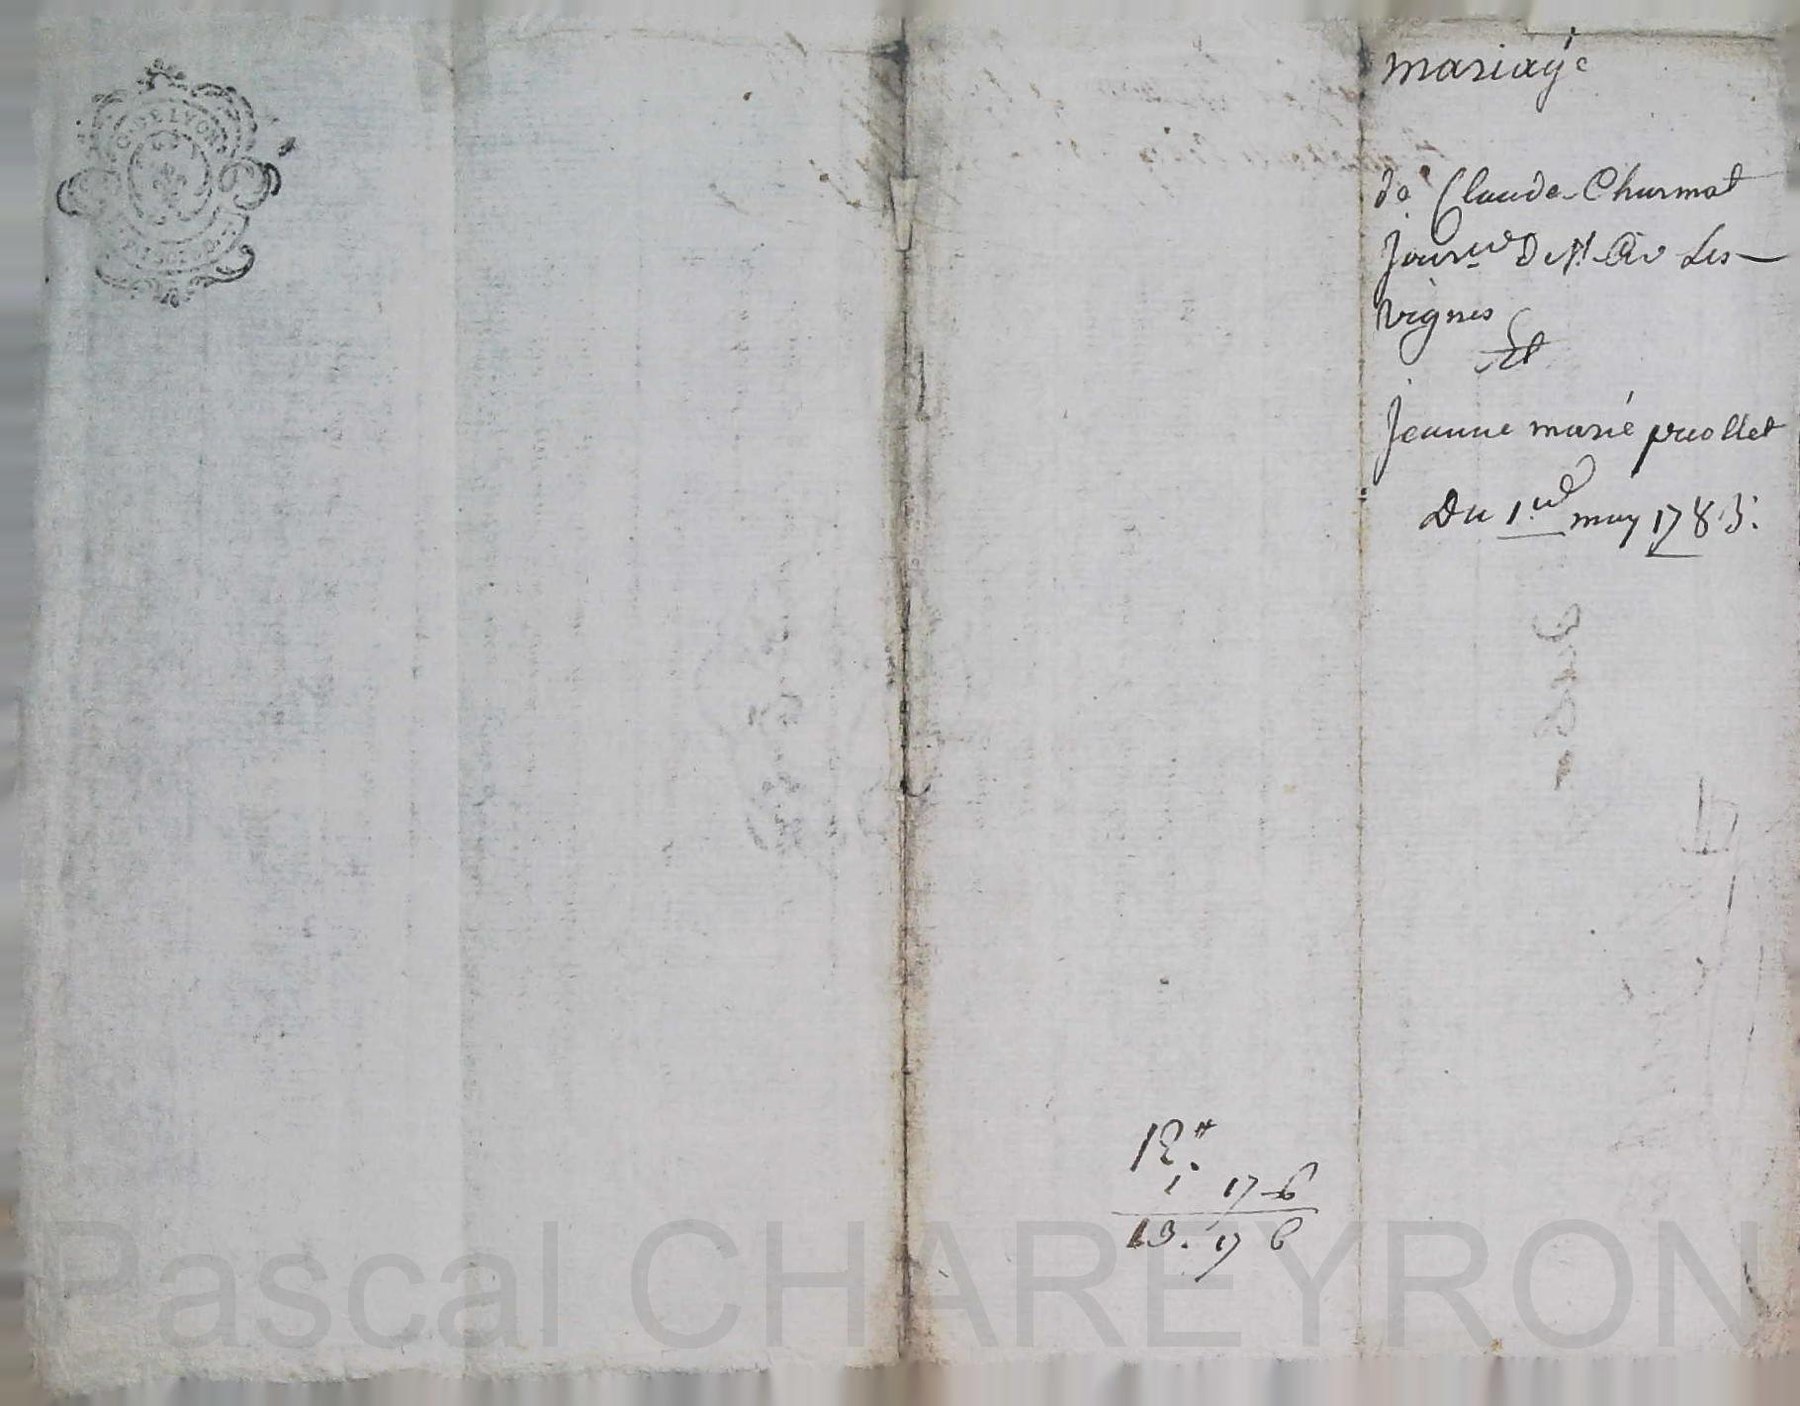 G. DE LYON
mariage
de Claude Charmat
Jour.er De St. Cir Les
vignes
Et
Jeanne marie priollet
Du 1.er may 1783.
12.#
1 17 6
13. 17 6
Pascal CHAREYRON